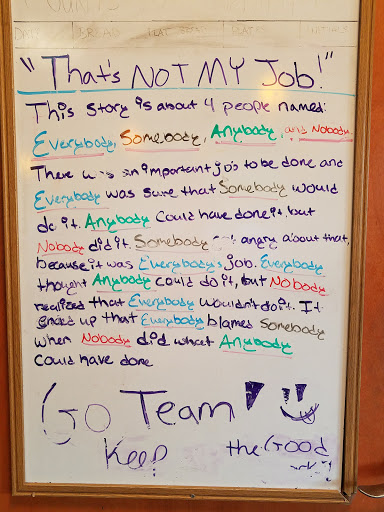 "That's NOT MY Job!"
This story is about 4 people named:
Everybody, Somebody, Anybody, and Nobody.
There was an important job to be done and
Everybody was sure that Somebody would
do it. Anybody could have done it but
Nobody did it. Somebody angry about that,
because it was Everybody's job. Everybody
thought Anybody could do it, but Nobody
realized that Everybody wouldn't do it. It
ended up that Everybody blamed Somebody
when Nobody did what Anybody
could have done
Go Team!
Keep the Good